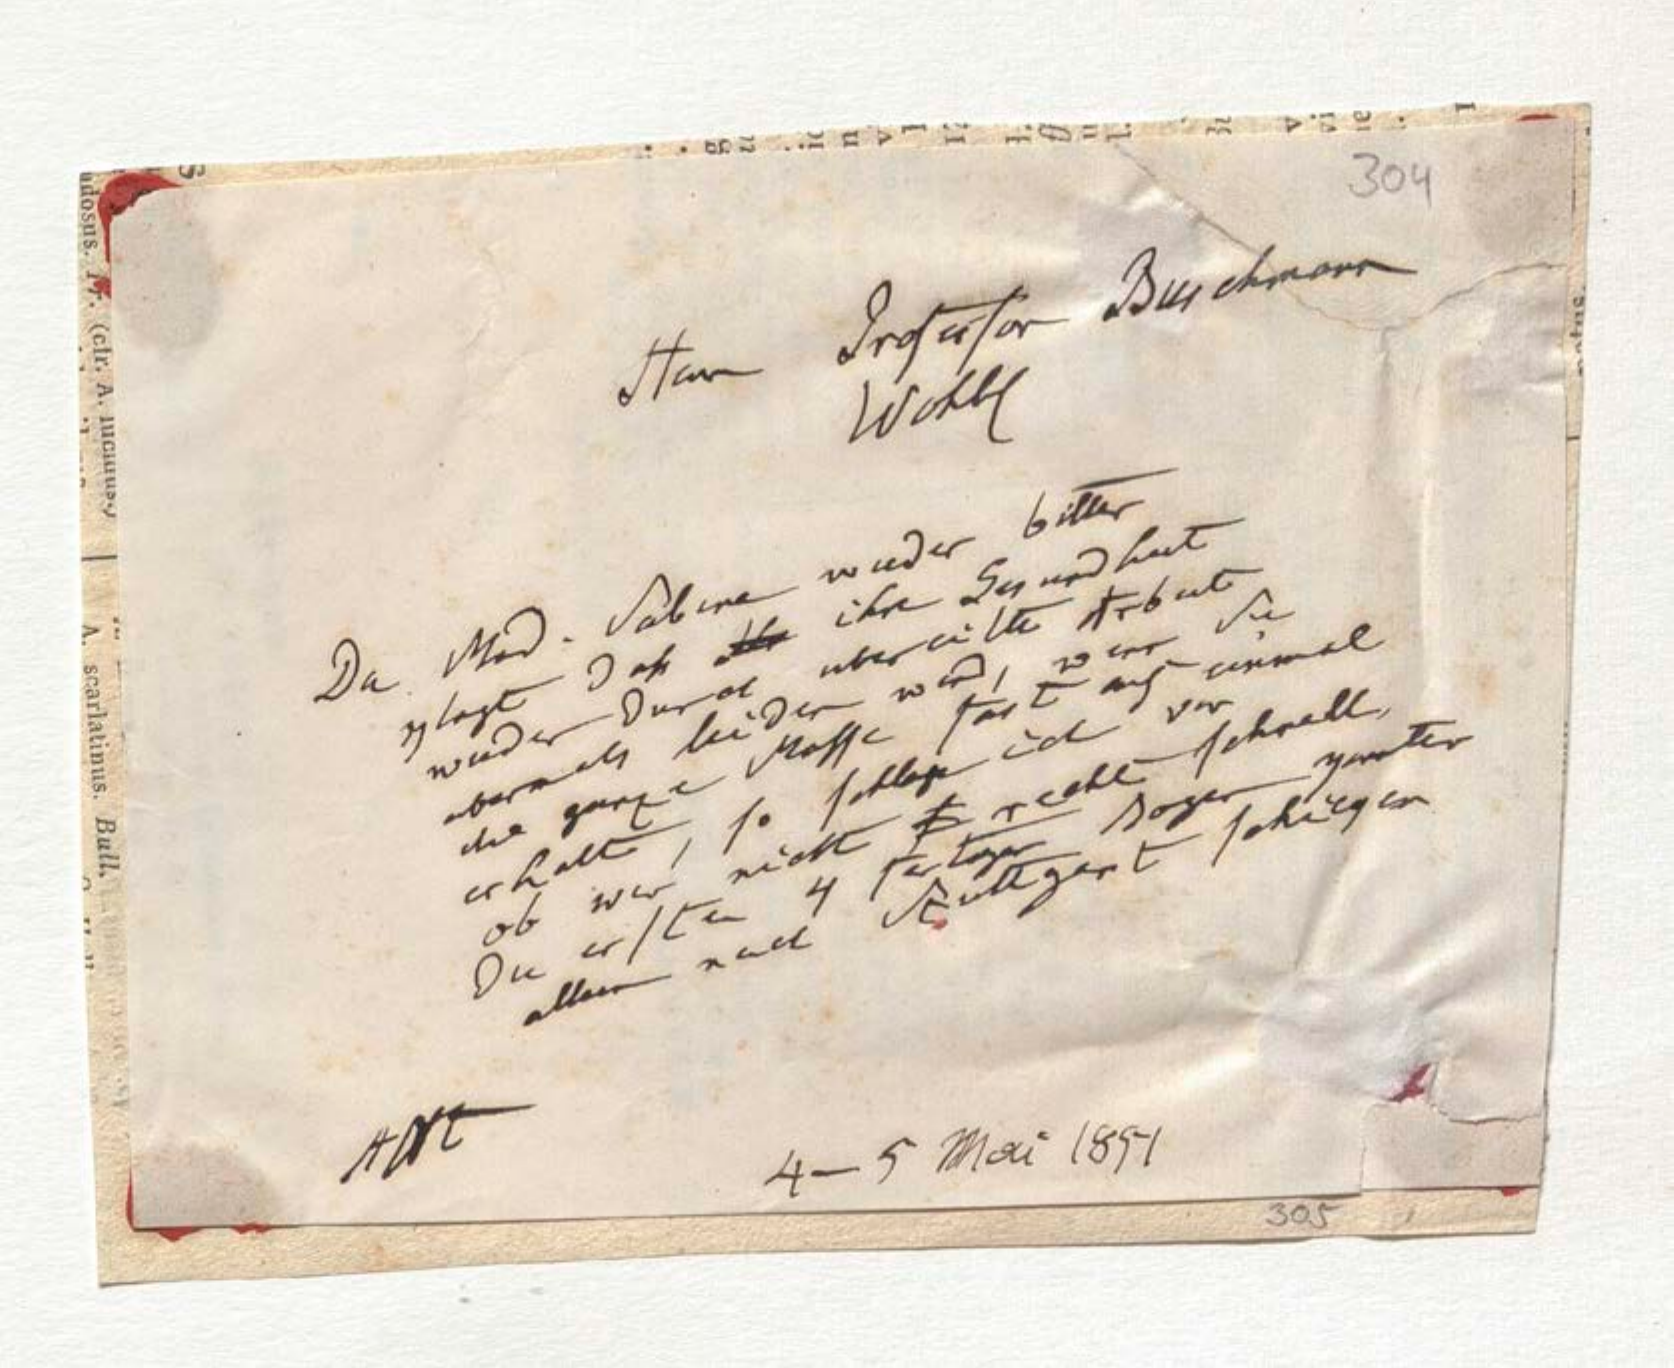 304
Herrn Professor Buschmann
Wohlg
Da Mad. Sabine wieder bitter
klagt daß ihre Gesundheit
wieder durch übereilte Arbeit
abermals leiden wird, wenn Sie
die ganze Masse fast auf einmal
erhalte, so schlage ich vor
ob wir nicht recht schnell,
Die ersten 4 fertigen Bogen
allein nach Stuttgart schicken
AHt
4–5 Mai 1851
305
A. scarlatinus. Bull.